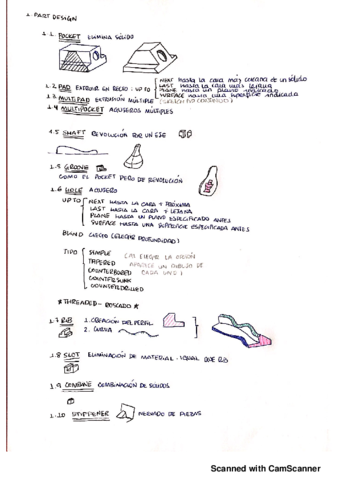 1. PART DESIGN
1.1. POCKET ELIMINA SÓLIDO
1.2 PAD EXTRUIR EN RECTO: UP TO
NEXT HASTA LA CARA MÁS CERCANA DE UN SÓLIDO
LAST HASTA LA CARA MÁS LEJANA
PLANE HASTA UN PLANO INDICADO
SURFACE HASTA UNA SUPERFICIE INDICADA
1.3 MULTIPAD EXTRUSIÓN MÚLTIPLE
1.4 MULTIPOCKET AGUJEROS MÚLTIPLES
1.5 SHAFT REVOLUCIÓN POR UN EJE
1.5 GROOVE
COMO EL POCKET PERO DE REVOLUCIÓN
1.6 HOLE AGUJERO
UP TO
NEXT HASTA LA CARA + PRÓXIMA
LAST HASTA LA CARA + LEJANA
PLANE HASTA UN PLANO ESPECIFICADO ANTES
SURFACE HASTA UNA SUPERFICIE ESPECIFICADA ANTES
BLIND CIEGO (ELEGIR PROFUNDIDAD)
TIPO
SIMPLE
TAPERED
COUNTERBORED
COUNTERSUNK
COUNTERDRILLED
(AL ELEGIR LA OPCIÓN
APARECE UN DIBUJO DE
CADA UNO)
* THREADED - ROSCADO *
1.7 RIB 1. CREACIÓN DEL PERFIL
2. CURVA
1.8 SLOT ELIMINACIÓN DE MATERIAL. IGUAL QUE RIB
1.9 COMBINE COMBINACIÓN DE SÓLIDOS
1.10 STIFFENER NERVADO DE PIEZAS
Scanned with CamScanner